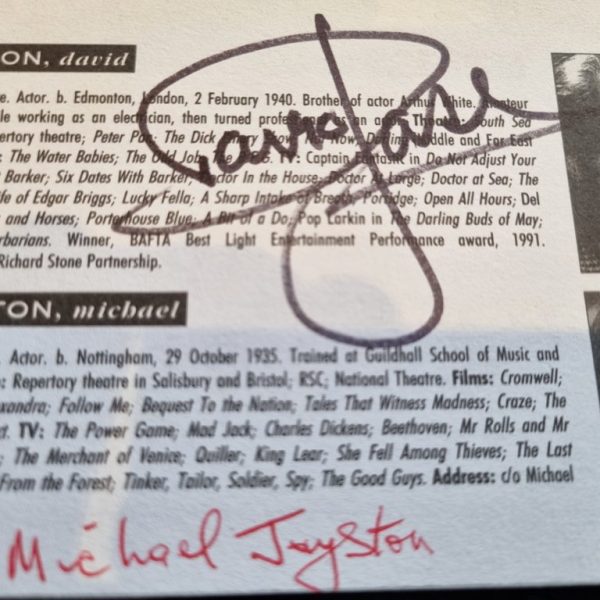 ON, david
e. Actor. b. Edmonton, London, 2 February 1940. Brother of actor Arthur White. Amateur
le working as an electrician, then turned professional as an actor. Theatre: South Sea
ertory theatre; Peter Pan; The Dick Emery Show; No Now, Darling; Middle and Far East
: The Water Babies; The Odd Job; The B.F.G. TV: Captain Fantastic in Do Not Adjust Your
Barker; Six Dates With Barker; Doctor In the House; Doctor At Large; Doctor at Sea; The
fe of Edgar Briggs; Lucky Fella; A Sharp Intake of Breath; Porridge; Open All Hours; Del
and Horses; Porterhouse Blue; A Bit of a Do; Pop Larkin in The Darling Buds of May;
rbarians. Winner, BAFTA Best Light Entertainment Performance award, 1991.
Richard Stone Partnership.
David Jason
TON, michael
. Actor. b. Nottingham, 29 October 1935. Trained at Guildhall School of Music and
: Repertory theatre in Salisbury and Bristol; RSC; National Theatre. Films: Cromwell;
xandra; Follow Me; Bequest To the Nation; Tales That Witness Madness; Craze; The
t. TV: The Power Game; Mad Jack; Charles Dickens; Beethoven; Mr Rolls and Mr
; The Merchant of Venice; Quiller; King Lear; She Fell Among Thieves; The Last
From the Forest; Tinker, Tailor, Soldier, Spy; The Good Guys. Address: c/o Michael
Michael Jayston